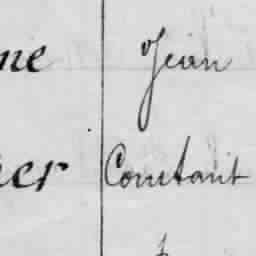 ne Jean
er Constant